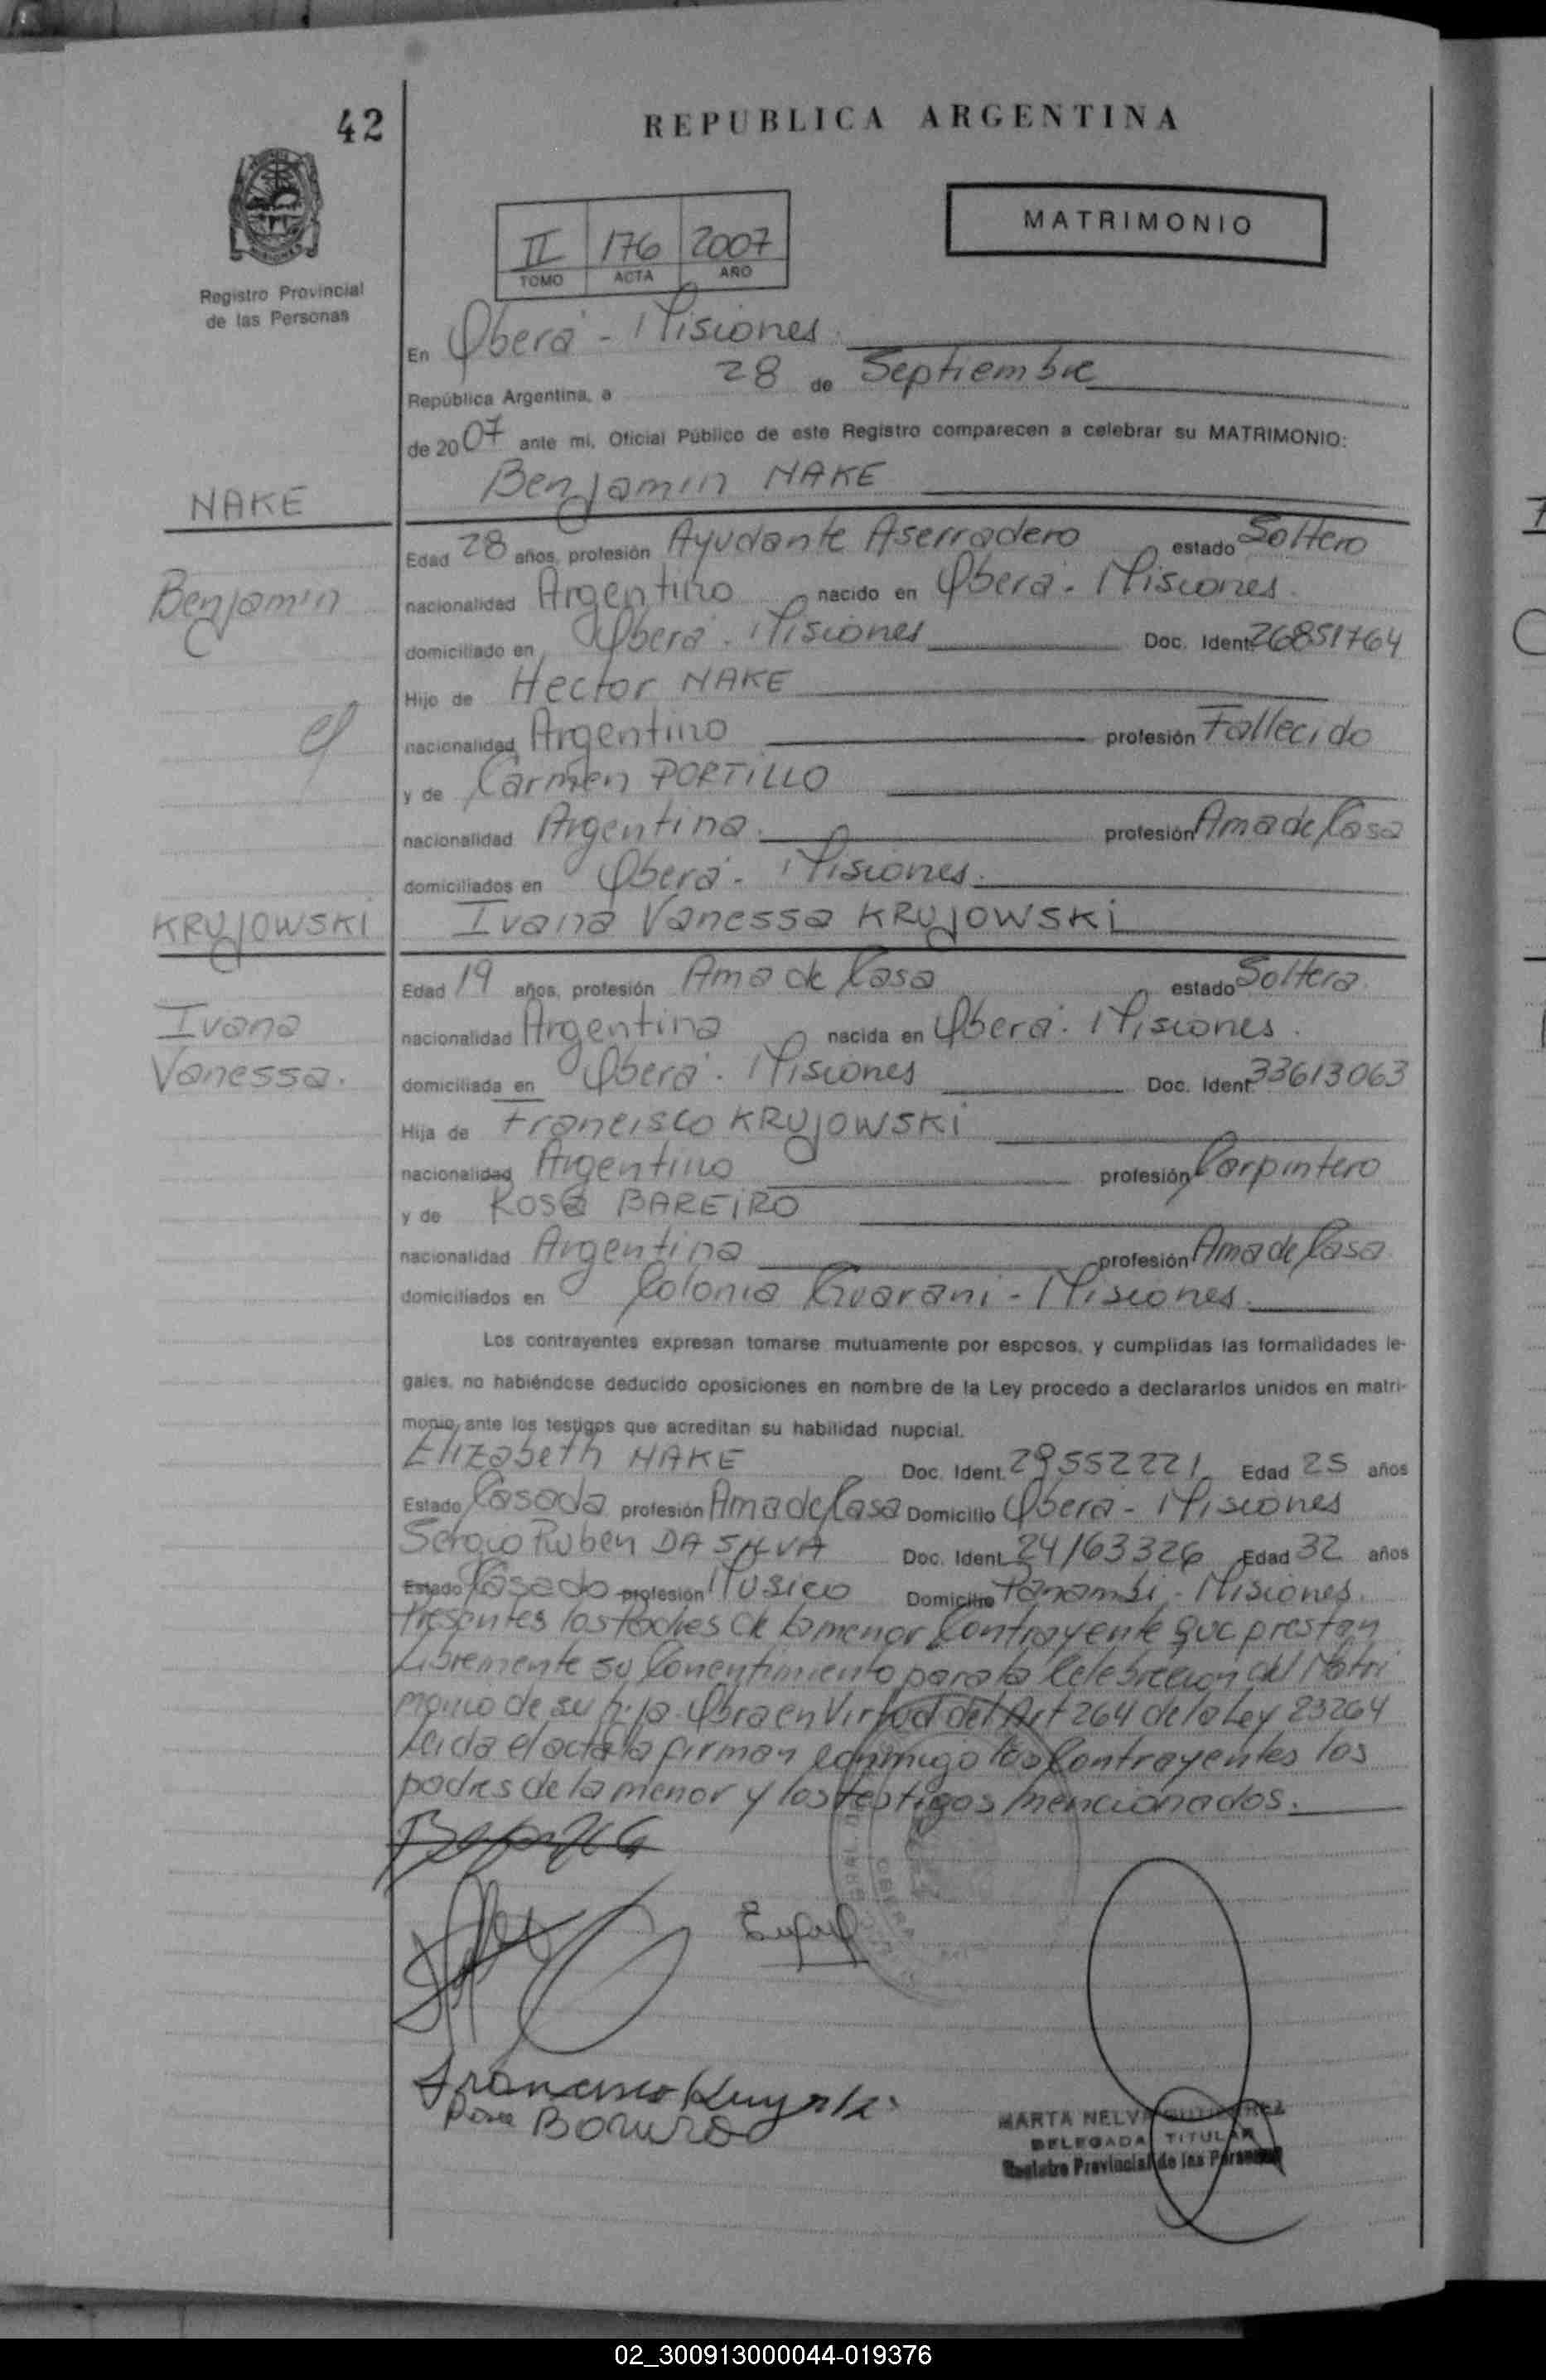 42
REPUBLICA ARGENTINA
MATRIMONIO
II 176 2007
TOMO ACTA AÑO
Registro Provincial
de las Personas
En Oberá - Misiones
República Argentina, a 28 de Septiembre
de 2007 ante mi, Oficial Público de este Registro comparecen a celebrar su MATRIMONIO:
NAKE Benjamin NAKE
Edad 28 años, profesión Ayudante Aserradero estado Soltero
Benjamin nacionalidad Argentino nacido en Oberá - Misiones.
domiciliado en Oberá - Misiones Doc. Ident. 26851764
Hijo de Hector NAKE
nacionalidad Argentino profesión Fallecido
y de Carmen PORTILLO
nacionalidad Argentina. profesión Ama de Casa
domiciliados en Oberá - Misiones.
KRUJOWSKI Ivana Vanessa KRUJOWSKI
Edad 19 años, profesión Ama de Casa estado Soltera
Ivana nacionalidad Argentina nacida en Oberá - Misiones.
Vanessa. domiciliada en Oberá - Misiones Doc. Ident. 33613063
Hija de Francisco KRUJOWSKI
nacionalidad Argentino profesión Carpintero
y de Rosa BAREIRO
nacionalidad Argentina profesión Ama de Casa
domiciliados en Colonia Guarani - Misiones.
Los contrayentes expresan tomarse mutuamente por esposos, y cumplidas las formalidades le-
gales, no habiéndose deducido oposiciones en nombre de la Ley procedo a declararlos unidos en matri-
monio ante los testigos que acreditan su habilidad nupcial.
Elizabeth NAKE Doc. Ident. 29552221 Edad 25 años
Estado Casada profesión Ama de Casa Domicilio Oberá - Misiones
Sergio Ruben DA SILVA Doc. Ident. 24163326 Edad 32 años
Estado Casado profesión Musico Domicilio Panambi - Misiones.
Presentes los Padres de la menor Contrayente que prestan
Libremente su Conentimiento para la Celebracion del Matri
monio de su hija. Obra en Virtud del Art 264 de la Ley 23264
Leida el acta la firman conmigo los Contrayentes los
padres de la menor y los testigos mencionados.
Francisco
Rosa
MARTA NELVA GUTIERREZ
DELEGADA TITULAR
Registro Provincial de las Personas
02_300913000044-019376